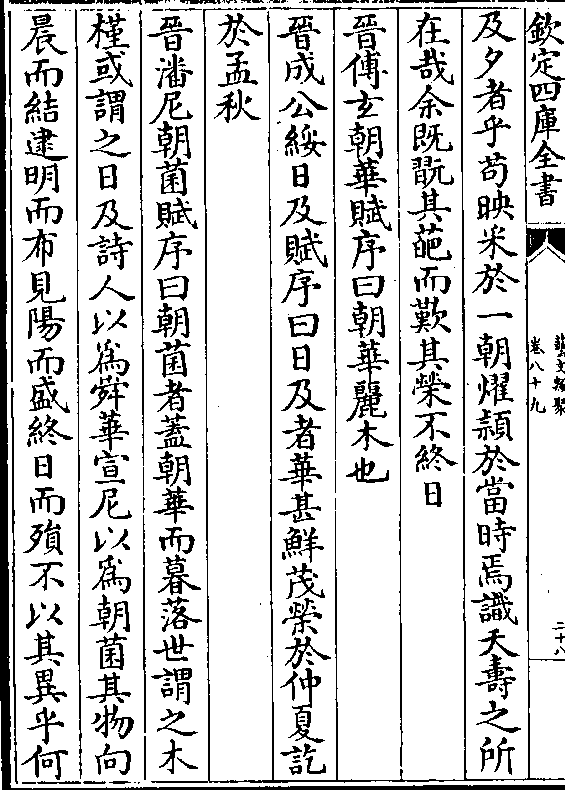 欽定四庫全書
藝文類聚
卷八十九
二十八
及夕者乎苟映采於一朝耀穎於當時焉識夭壽之所
在哉余既翫其葩而歎其榮不終日
晉傅玄朝華賦序曰朝華麗木也
晉成公綏日及賦序曰日及者華甚鮮茂榮於仲夏訖
於孟秋
晉潘尼朝菌賦序曰朝菌者蓋朝華而暮落世謂之木
槿或謂之日及詩人以為舜華宣尼以為朝菌其物向
晨而結逮明而布見陽而盛終日而殞不以其異乎何